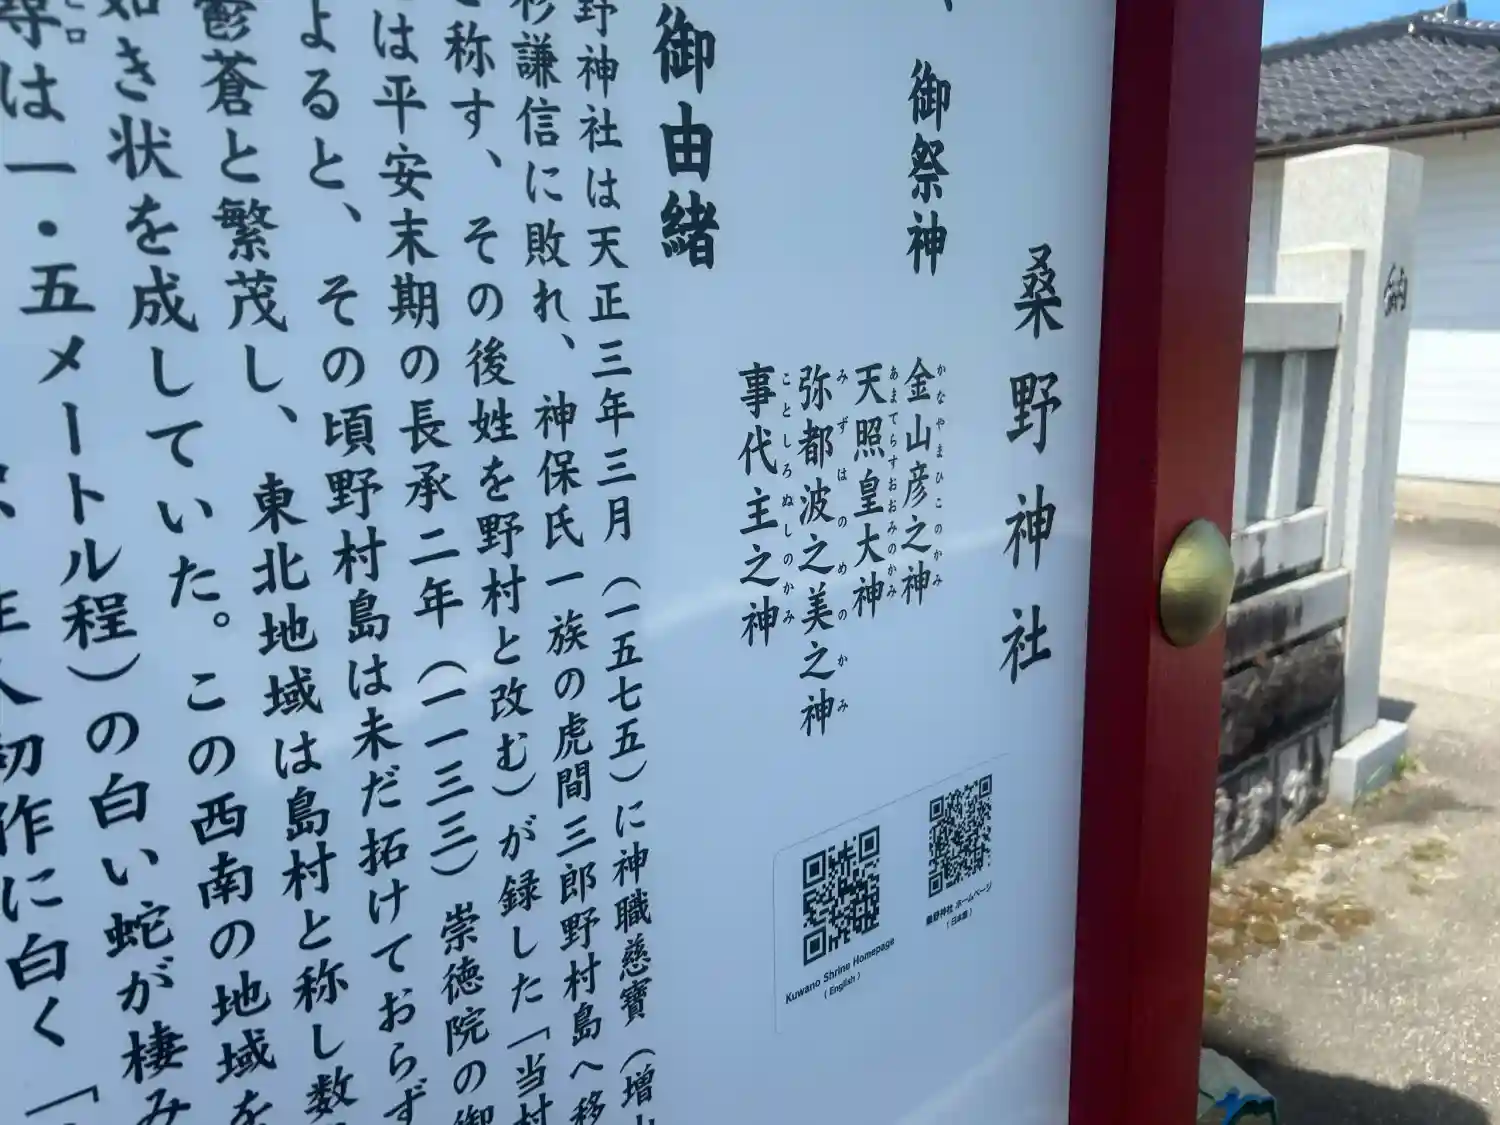 桑野神社
御祭神
金山彦之神
かなやまひこのかみ
天照皇大神
あまてらすおおみのかみ
弥都波之美之神
みずはのめのかみ
事代主之神
ことしろぬしのかみ
桑野神社 ホームページ
(日本語)
Kuwano Shrine Homepage
(English)
御由緒
野神社は天正三年三月(一五七五)に神職慈寶(増山
杉謙信に敗れ、神保氏一族の虎間三郎野村島へ移
と称す、その後姓を野村と改む)が録した「当村
は平安末期の長承二年(一一三三)崇徳院の御
よると、その頃野村島は未だ拓けておらず
鬱蒼と繁茂し、東北地域は島村と称し数
如き状を成していた。この西南の地域を
尋は一・五メートル程)の白い蛇が棲み
ヒロ
初作に白く「
納